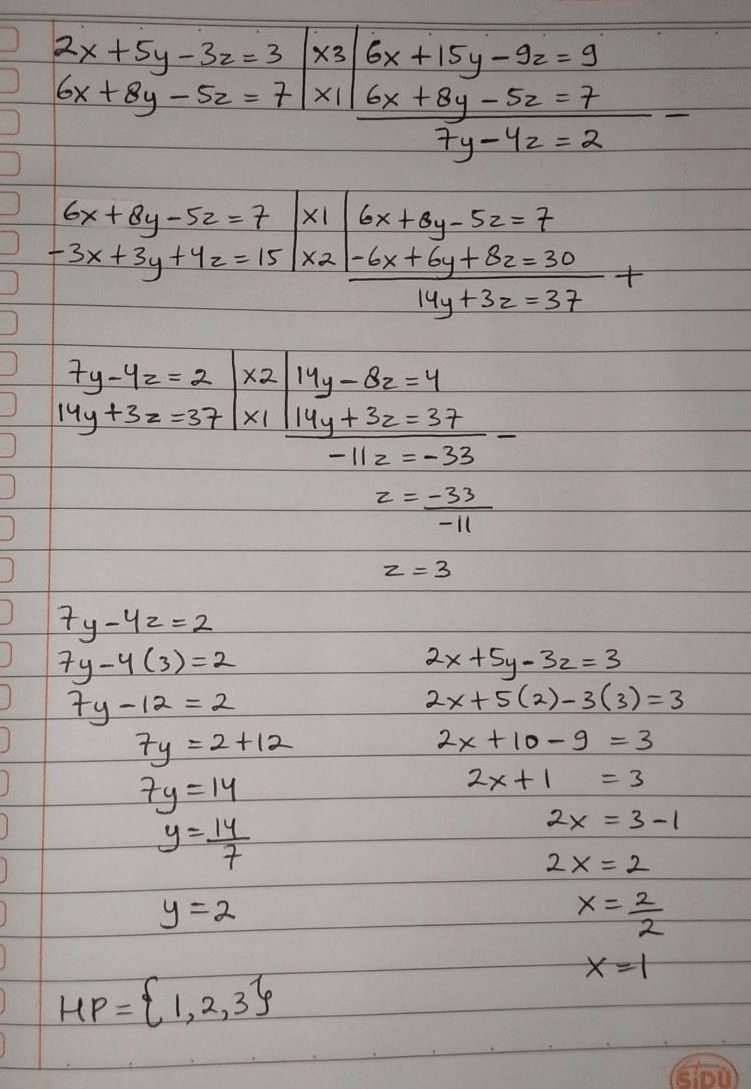 2x+5y-3z=3 | x3 | 6x+15y-9z=9
6x+8y-5z=7 | x1 | 6x+8y-5z=7 -
7y-4z=2
6x+8y-5z=7 | x1 | 6x+8y-5z=7
-3x+3y+4z=15 | x2 | -6x+6y+8z=30 +
14y+3z=37
7y-4z=2 | x2 | 14y-8z=4
14y+3z=37 | x1 | 14y+3z=37 -
-11z=-33
z=-33
-11
z=3
7y-4z=2
7y-4(3)=2
7y-12=2
7y=2+12
7y=14
y=14
7
y=2
2x+5y-3z=3
2x+5(2)-3(3)=3
2x+10-9=3
2x+1=3
2x=3-1
2x=2
x=2
2
x=1
HP={1,2,3}
SIDU